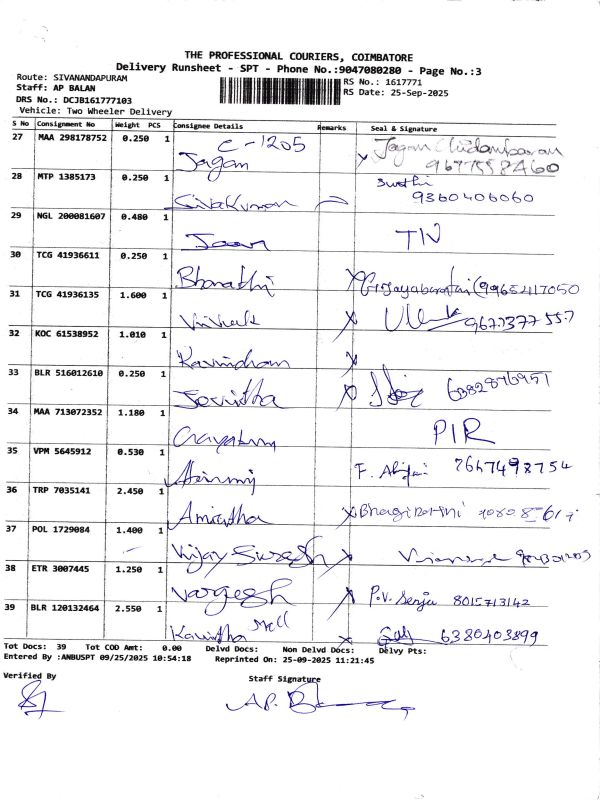 THE PROFESSIONAL COURIERS, COIMBATORE
Delivery Runsheet - SPT - Phone No.:9047080280 - Page No.:3
Route: SIVANANDAPURAM RS No.: 1617771
Staff: AP BALAN RS Date: 25-Sep-2025
DRS No.: DCJB161777103
Vehicle: Two Wheeler Delivery
S No Consignment No Weight PCS Consignee Details Remarks Seal & Signature
27 MAA 298178752 0.250 1 C-1205 Jagan Jagan Chidambaram 9677558460
28 MTP 1385173 0.250 1 SivaKumar Swathi 9360406060
29 NGL 200081607 0.480 1
30 TCG 41936611 0.250 1 Bharathi
31 TCG 41936135 1.600 1 Vivek
32 KOC 61538952 1.010 1 Ravindran
33 BLR 516012610 0.250 1 6382876951
34 MAA 713072352 1.180 1 PIR
35 VPM 5645912 0.530 1 7667498754
36 TRP 7035141 2.450 1 Amirtha
37 POL 1729084 1.400 1 Vijay Suresh
38 ETR 3007445 1.250 1 Vargesh P.V. Senju 8015713142
39 BLR 120132464 2.550 1 Kavitha 6380403899
Tot Docs: 39 Tot COD Amt: 0.00 Delvd Docs: Non Delvd Docs: Delvy Pts:
Entered By :ANBUSPT 09/25/2025 10:54:18 Reprinted On: 25-09-2025 11:21:45
Verified By Staff Signature